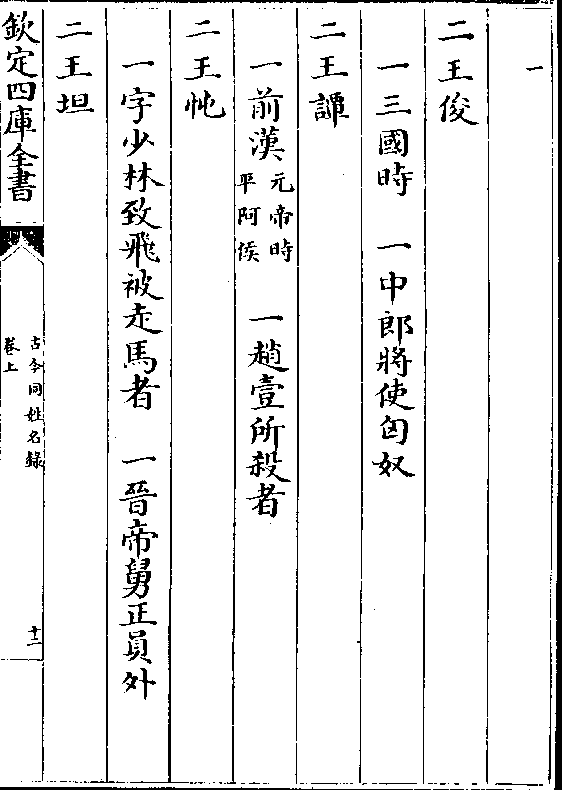 一
二王俊
一三國時　一中郎將使匈奴
二王譚
一前漢元帝時平阿侯　一趙壹所殺者
二王忳
一字少林致飛被走馬者　一晉帝舅正員外
二王坦
欽定四庫全書
古今同姓名錄
卷上
十二